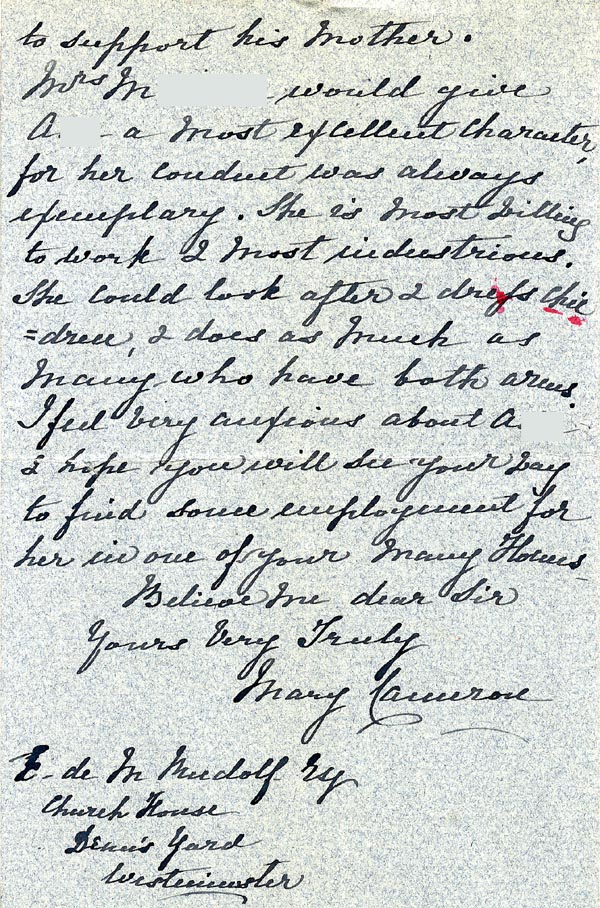 to support his Mother.
Mrs M would give
A a most excellent Character,
for her conduct was always
exemplary. She is most willing
to work & most industrious.
She could look after & dress chil
=dren, & does as much as
Many who have both arms.
I feel very anxious about A
& hope you will see your way
to find some employment for
her in one of your Many Homes
Believe Me dear Sir
Yours Very Truly
Mary Cameron
E- de M Rudolf Esq
Church House
Dean's Yard
Westminster